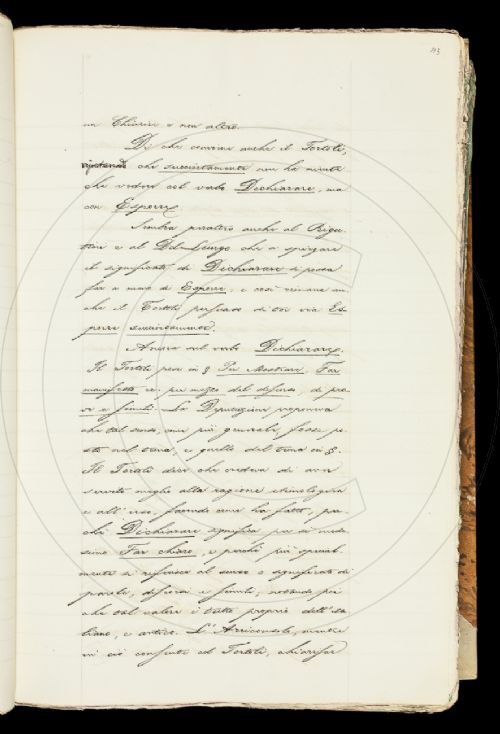 113
un Chiarire e non altro.
Di che conviene anche il Tortoli,
che succintamente non ha niente
che vedere col verbo Dichiarare, ma
con Esporre.
Sembra peraltro anche al Rigu-
tini e al Del Lungo che a spiegare
il significato di Dichiarare si possa
far a meno di Esporre, e così rimane an-
che il Tortoli persuaso di tor via Es-
porre succintamente.
Ancora nel verbo Dichiarare.
Il Tortoli pose in § Per Mostrare, Far
manifesto ec. per mezzo del discorso, di pro-
ve e simili. La Deputazione proponeva
che tal senso, come più generale, fosse po-
sto nel tema, e quello del tema in §.
Il Tortoli dice che credeva di aver
servito meglio alla ragione etimologica
e all'uso, facendo come ha fatto, per-
chè Dichiarare significa per sè mede-
simo Far chiaro, e perchè più special-
mente si riferisce al senso o significato di
parole, discorsi e simili, notando poi
che tal valore è tutto proprio dell'ita-
liano, e antico. L'Arciconsolo, mentre
in ciò consente col Tortoli,